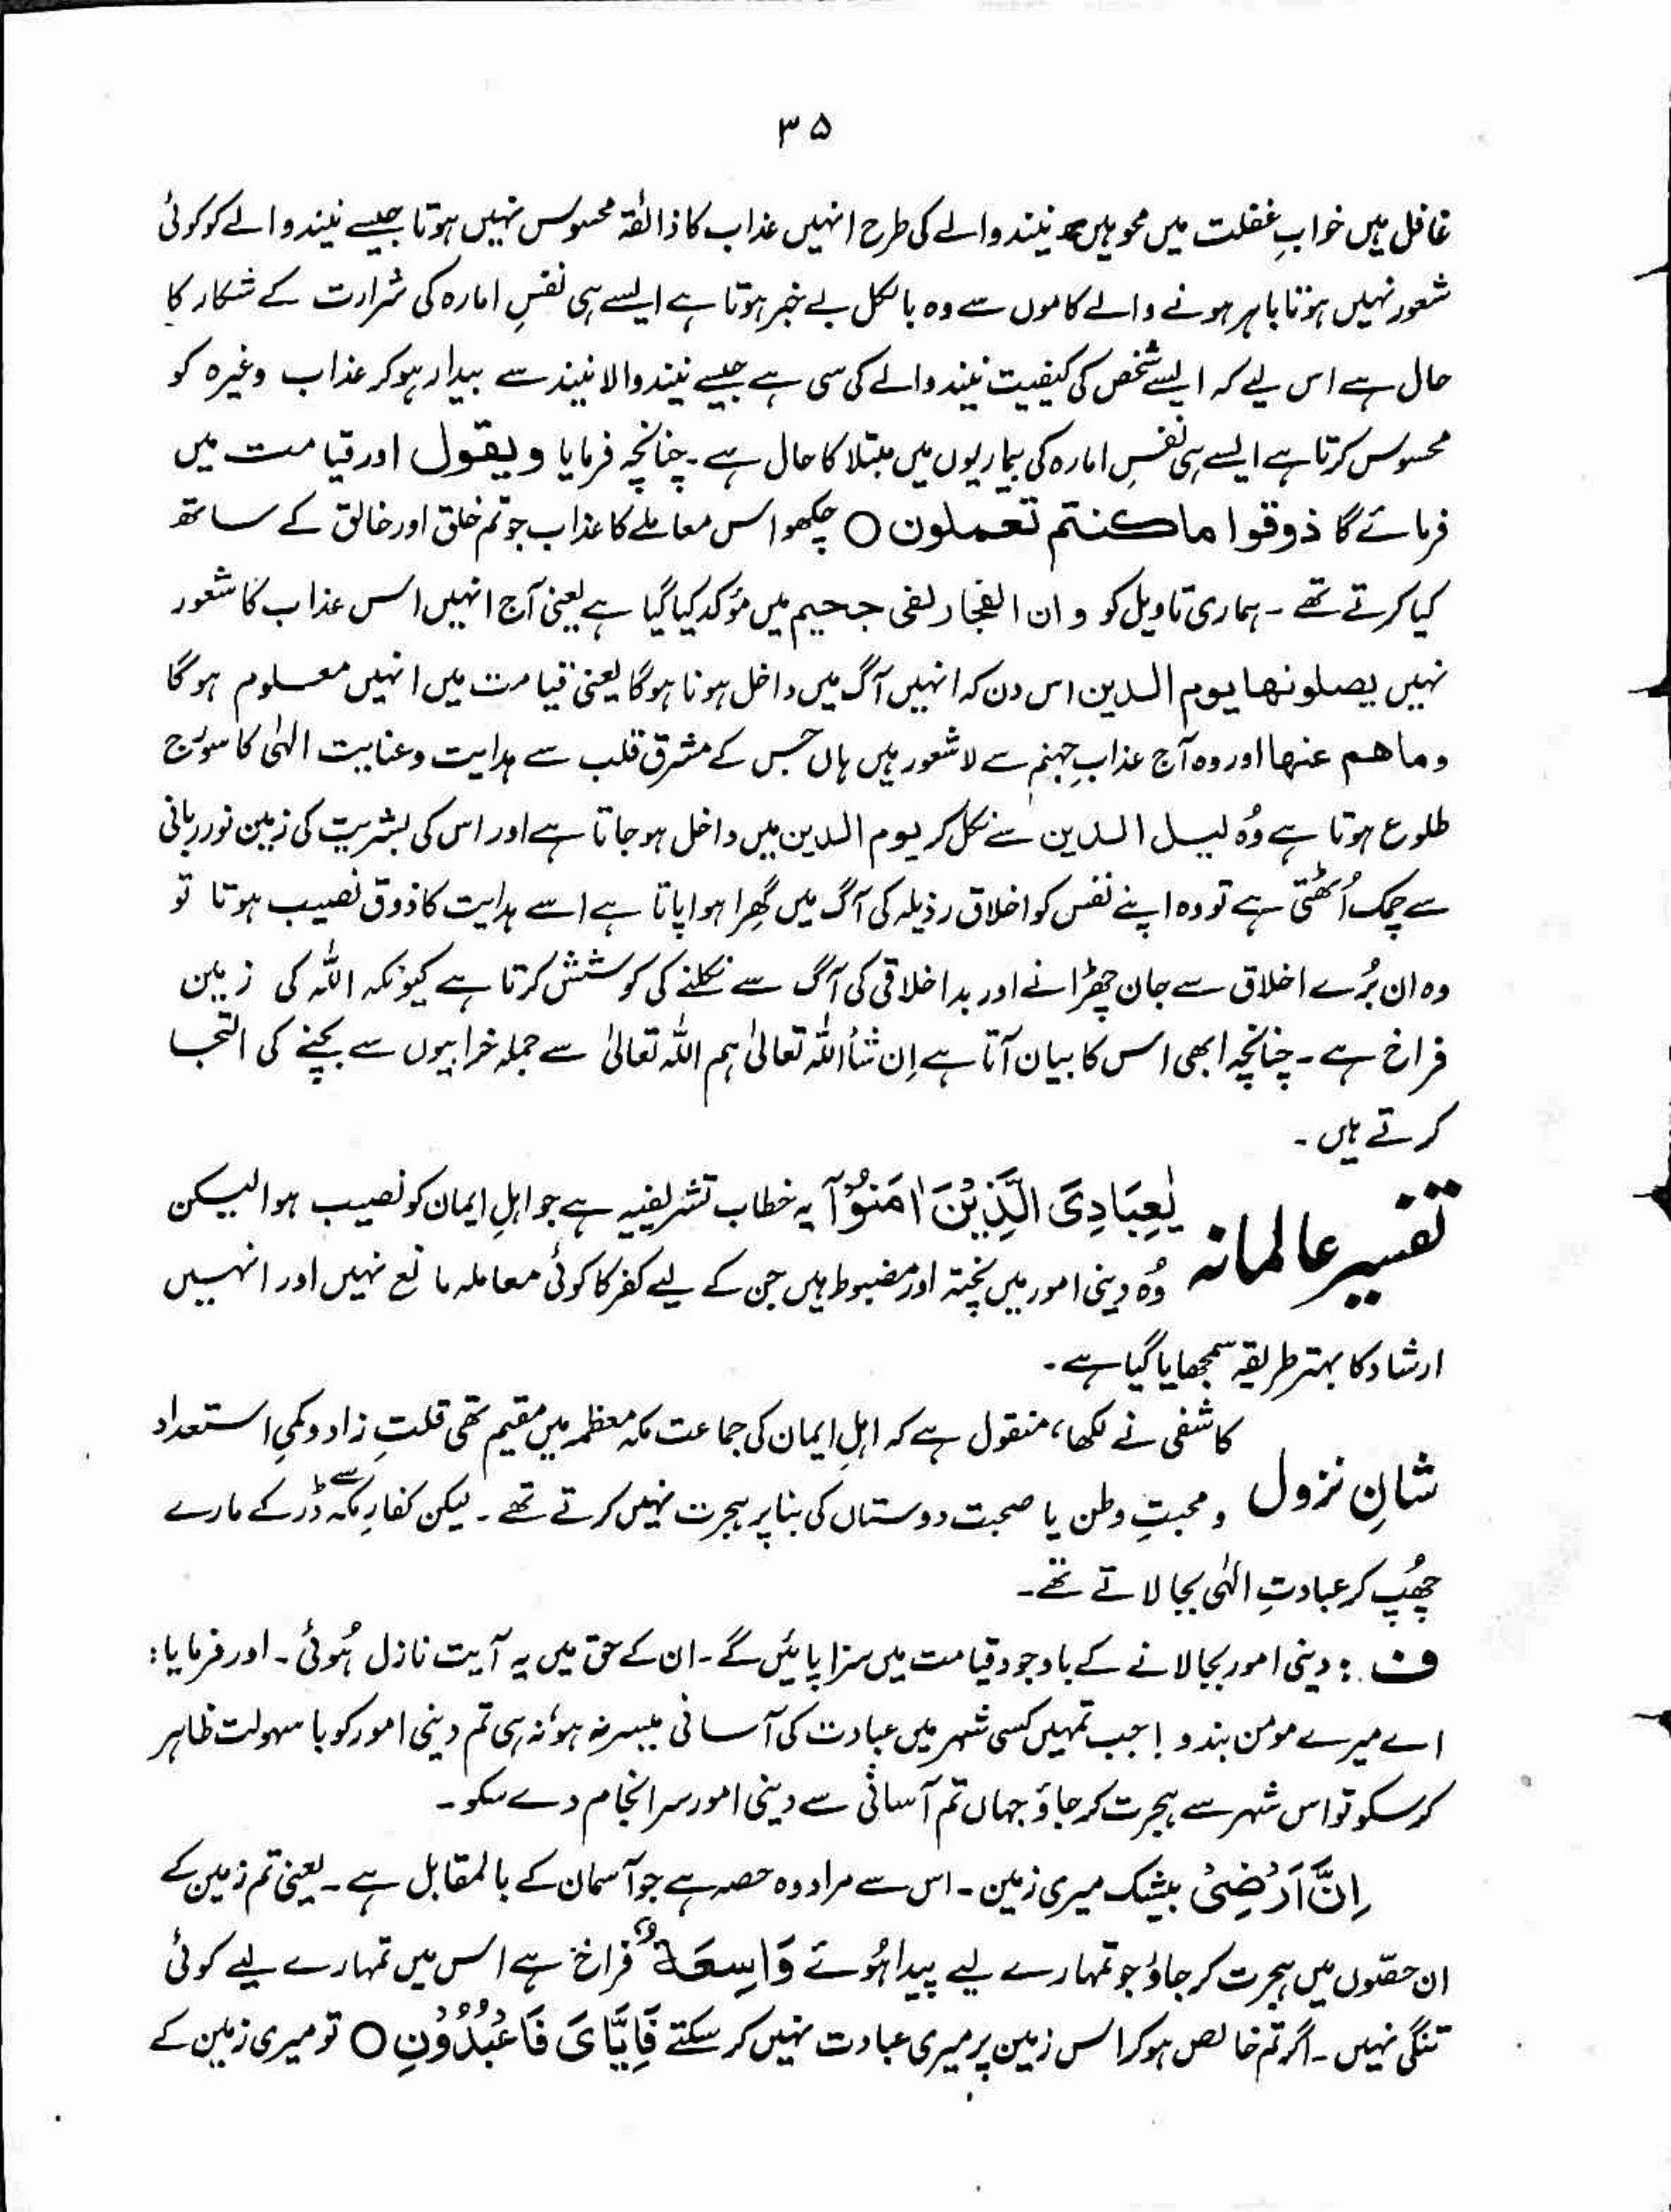 ۳۵
غافل ہیں خوابِ غفلت میں محو ہیں نیند والے کی طرح انہیں عذاب کا ذائقہ محسوس نہیں ہوتا جیسے نیند والے کو کوئی
شعور نہیں ہوتا باہر ہونے والے کاموں سے وہ بالکل بے خبر ہوتا ہے ایسے ہی نفسِ امارہ کی شرارت کے شکار کا
حال ہے اس لیے کہ ایسے شخص کی کیفیت نیند والے کی سی ہے جیسے نیند والا نیند سے بیدار ہوکر عذاب وغیرہ کو
محسوس کرتا ہے ایسے ہی نفسِ امارہ کی بیماریوں میں مبتلا کا حال ہے ۔ چنانچہ فرمایا ویقول اور قیامت میں
فرمائے گا ذوقوا ما کنتم تعملون ○ چکھو اس معاملے کا عذاب جو تم خلق اور خالق کے ساتھ
کیا کرتے تھے ۔ ہماری تاویل کو و ان الفجار لفی جحیم میں مؤکد کیا گیا ہے یعنی آج انہیں اس عذاب کا شعور
نہیں یصلونھا یوم الدین اس دن کہ انہیں آگ میں داخل ہونا ہوگا یعنی قیامت میں انہیں معلوم ہوگا
وما ھم عنھا اور وہ آج عذابِ جہنم سے لاشعور ہیں ہاں جس کے مشرق قلب سے ہدایت و عنایت الٰہی کا سورج
طلوع ہوتا ہے وُہ لیل الدین سے نکل کر یوم الدین میں داخل ہوجاتا ہے اور اس کی بشریت کی زمین نور ربانی
سے چمک اُٹھتی ہے تو وہ اپنے نفس کو اخلاق رذیلہ کی آگ میں گِھرا ہوا پاتا ہے اسے ہدایت کا ذوق نصیب ہوتا تو
وہ ان بُرے اخلاق سے جان چھڑانے اور بداخلاقی کی آگ سے نکلنے کی کوشش کرتا ہے کیونکہ اللہ کی زمین
فراخ ہے ۔ چنانچہ ابھی اس کا بیان آتا ہے اِن شأ اللہ تعالیٰ ہم اللہ تعالیٰ سے جملہ خرابیوں سے بچنے کی التجا
کرتے ہیں ۔
تفسیر عالمانہ یٰعِبَادِیَ الَّذِیْنَ اٰمَنُوْٓا یہ خطاب تشریفیہ ہے جو اہلِ ایمان کو نصیب ہوا لیکن
وُہ دینی امور میں پختہ اور مضبوط ہیں جن کے لیے کفر کا کوئی معاملہ مانع نہیں اور انہیں
ارشاد کا بہتر طریقہ سمجھایا گیا ہے ۔
شانِ نزول کاشفی نے لکھا، منقول ہے کہ اہلِ ایمان کی جماعت مکہ معظمہ میں مقیم تھی قلتِ زاد و کمیِ استعداد
و محبتِ وطن یا صحبت دوستاں کی بنا پر ہجرت نہیں کرتے تھے ۔ لیکن کفارِ مکہ سے ڈر کے مارے
چھُپ کر عبادتِ الٰہی بجا لاتے تھے ۔
ف : دینی امور بجا لانے کے باوجود قیامت میں سزا پائیں گے ۔ ان کے حق میں یہ آیت نازل ہُوئی ۔ اور فرمایا :
اے میرے مومن بندو ! جب تمہیں کسی شہر میں عبادت کی آسانی میسر نہ ہو، نہ ہی تم دینی امور کو با سہولت ظاہر
کرسکو تو اس شہر سے ہجرت کر جاؤ جہاں تم آسانی سے دینی امور سرانجام دے سکو ۔
اِنَّ اَرْضِیْ بیشک میری زمین ۔ اس سے مراد وہ حصہ ہے جو آسمان کے بالمقابل ہے ۔ یعنی تم زمین کے
ان حصّوں میں ہجرت کر جاؤ جو تمہارے لیے پیدا ہُوئے وَاسِعَةٌ فراخ ہے اس میں تمہارے لیے کوئی
تنگی نہیں ۔ اگر تم خالص ہوکر اس زمین پر میری عبادت نہیں کرسکتے فَاِیَّایَ فَاعْبُدُوْنِ ○ تو میری زمین کے